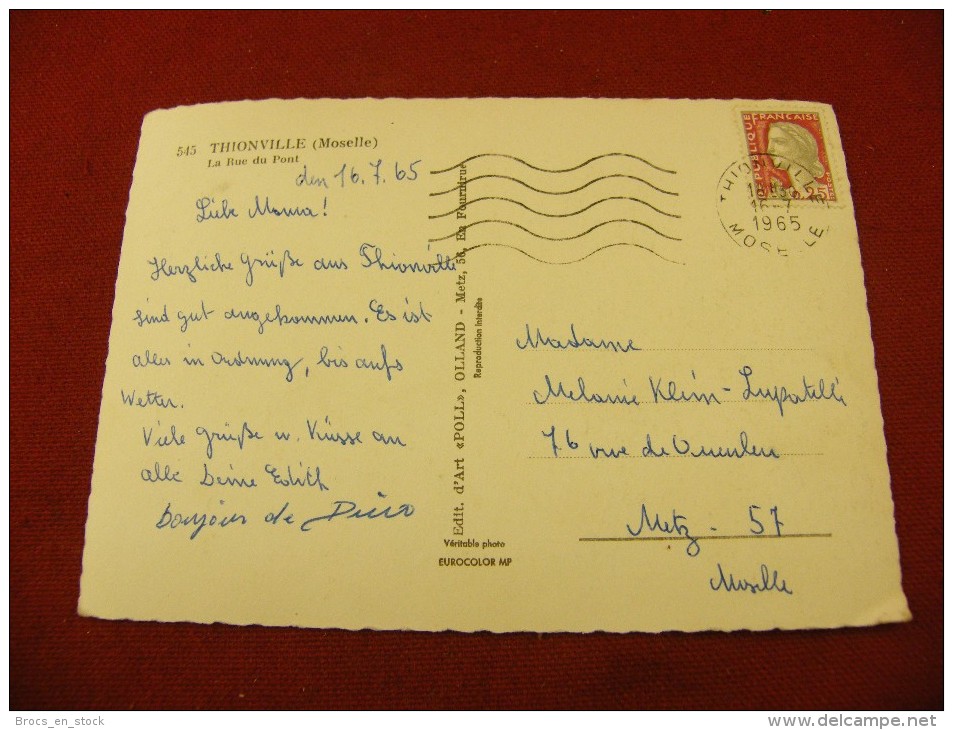 545 THIONVILLE (Moselle)
La Rue du Pont
den 16.7.65
Liebe Mama!
Herzliche Grüße aus Thionville
sind gut angekommen. Es ist
alles in Ordnung, bis aufs
Wetter.
Viele Grüße u. Küsse an
alle Deine Edith
bonjour de
Edit. d'Art «POLL», OLLAND - Metz, 56, En Fournirue
Reproduction Interdite
Véritable photo
EUROCOLOR MP
REPUBLIQUE FRANCAISE
0,25
THIONVILLE
16-7
1965
MOSELLE
Madame
Melanie Klein-Lupatelli
76 rue de Queuleu
Metz - 57
Moselle
Brocs_en_stock
www.delcampe.net